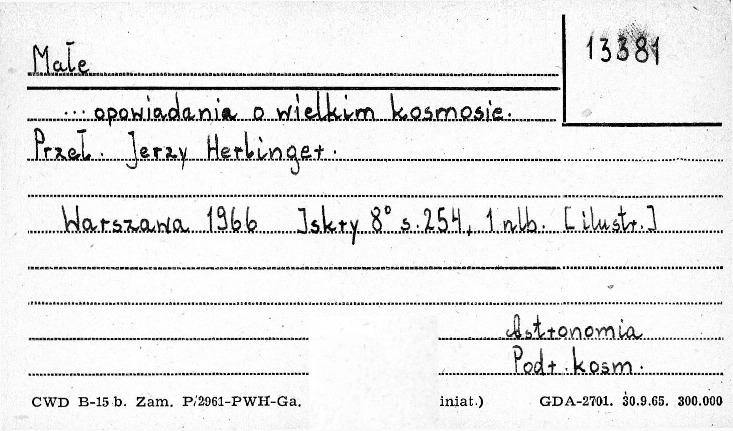 Małe
13381
... opowiadania o wielkim kosmosie.
Przeł. Jerzy Herlinger.
Warszawa 1966 Iskry 8° s. 254, 1 nlb. [ilustr.]
Astronomia
Podr. kosm.
CWD B-15 b. Zam. P/2961-PWH-Ga. iniat.) GDA-2701. 30.9.65. 300.000